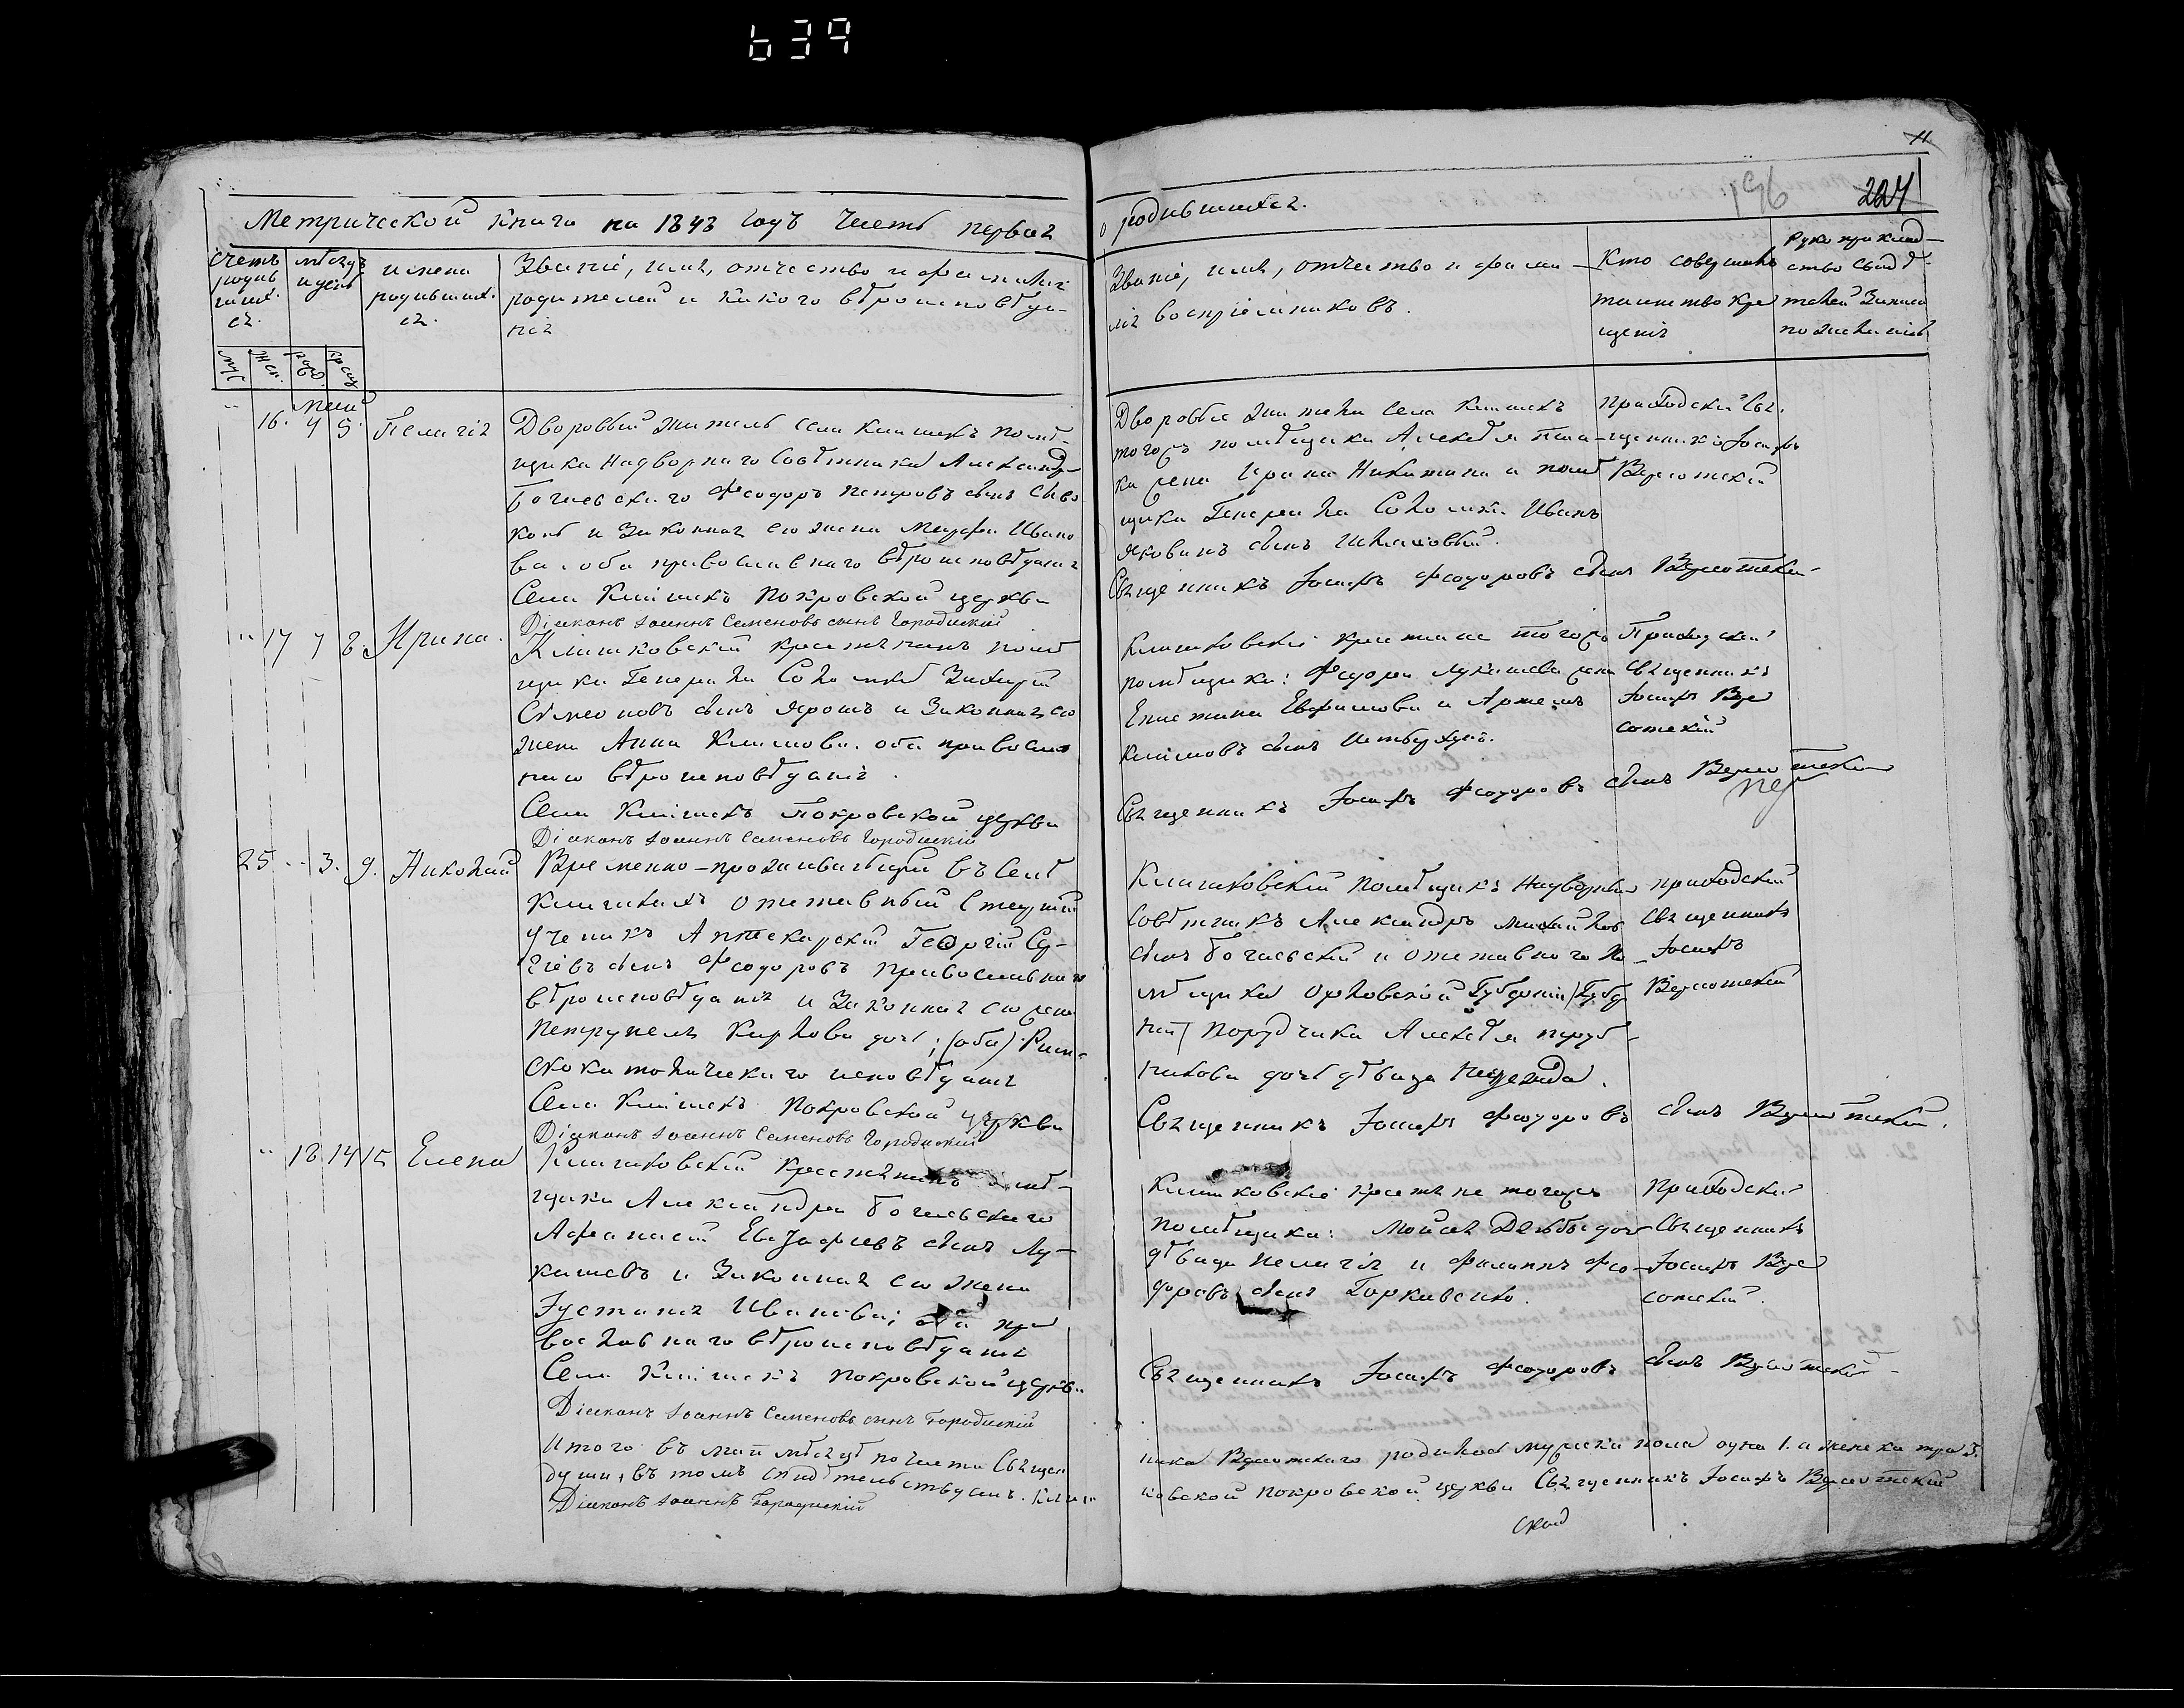 639
11
196
227
Метрической книги на 1843 годъ часть первая
о родившихся.
Счетъ родив шихся.
мѣсяцъ и день
имена родившихся.
Званіе, имя, отчество и фамилія
родителей и какого вѣроисповѣда-
нія
Званіе, имя, отчество и фами-
лія воспріемниковъ.
Кто совершалъ
таинство кре
щенія
Рукоприклад-
ство свидѣ-
телей записи
по желанію
Муж.
Жен.
рожд.
крещ.
маій
16. 4 5. Пелагія
Дворовый житель села Клишекъ помѣ-
щика Надворнаго Совѣтника Александра
Богаевскаго Феодоръ Петровъ сынъ
и законная его жена Марфа Ивано
ва оба православнаго вѣроисповѣданія
Села Клишекъ Покровской церкви
Діаконъ Іоаннъ Семеновъ сынъ Городискій
Дворовые жители села Клишекъ
тогожъ помѣщика Алексѣя
жена Ирина Никитина и помѣ
щика Генерала Соломки Иванъ
Яковлевъ сынъ
Священникъ Іосифъ Феодоровъ сынъ Высотскій
Приходскій Свя-
щенникъ Іосифъ
Высотскій
17 7 8. Ирина.
Клишковскій крестьянинъ помѣ
щика Генерала Соломки Захарій
Симеоновъ сынъ Ярошъ и законная его
жена Анна Климова. оба православ
наго вѣроисповѣданія.
Села Клишекъ Покровской церкви
Діаконъ Іоаннъ Семеновъ Городискій
Клишковскіе крестьяне тогожъ
помѣщика: Федора Лукашева жена
Епистима Евфимова и Артемъ
Климовъ сынъ
Священникъ Іосифъ Феодоровъ сынъ Высотскій
Приходскій
священникъ
Іосифъ Вы
сотскій
25 3. 9. Николай
Временно-проживающій въ селѣ
Клишкахъ отставный старшій
ученикъ Аптекарскій Георгій Се-
ргіевъ сынъ Феодоровъ православнаго
вѣроисповѣданія и законная его жена
Петрунеля Карлова дочь; (оба) Рим-
скокатолическаго исповѣданія
Села Клишекъ Покровской церкви
Діаконъ Іоаннъ Семеновъ Городискій
Клишковскій помѣщикъ Надворный
Совѣтникъ Александръ Михайловъ
сынъ Богаевскій и отставного По-
мѣщика Орловской Губерніи
Порутчика Алексѣя
дочь дѣвица Надежда.
Священникъ Іосифъ Феодоровъ сынъ Высотскій.
приходскій
Священникъ
Іосифъ
Высотскій
18 14 15 Елена
Клишковскій крестьянинъ помѣ-
щика Александра Богаевскаго
Афанасій Евстафіевъ сынъ Лу-
кашевъ и законная его жена
Іустинія Иванова; оба пра
вославнаго вѣроисповѣданія
Села Клишекъ Покровской церкви
Діаконъ Іоаннъ Семеновъ сынъ Городискій
Клишковскіе крестьяне тогожъ
помѣщика: Мойсея дочь
дѣвица Пелагія и Филиппъ Фео-
доровъ сынъ Горкавенко.
Священникъ Іосифъ Феодоровъ сынъ Высотскій
Приходскій
Священникъ
Іосифъ Вы
сотскій.
Итого въ маѣ мѣсяцѣ по части Священ
ника Высотскаго родилось мужска пола одна 1. а женска три 3.
души, въ томъ свидѣтельствуемъ. Клиш
ковской Покровской церкви Священникъ Іосифъ Высотскій
Діаконъ Іоаннъ Городискій